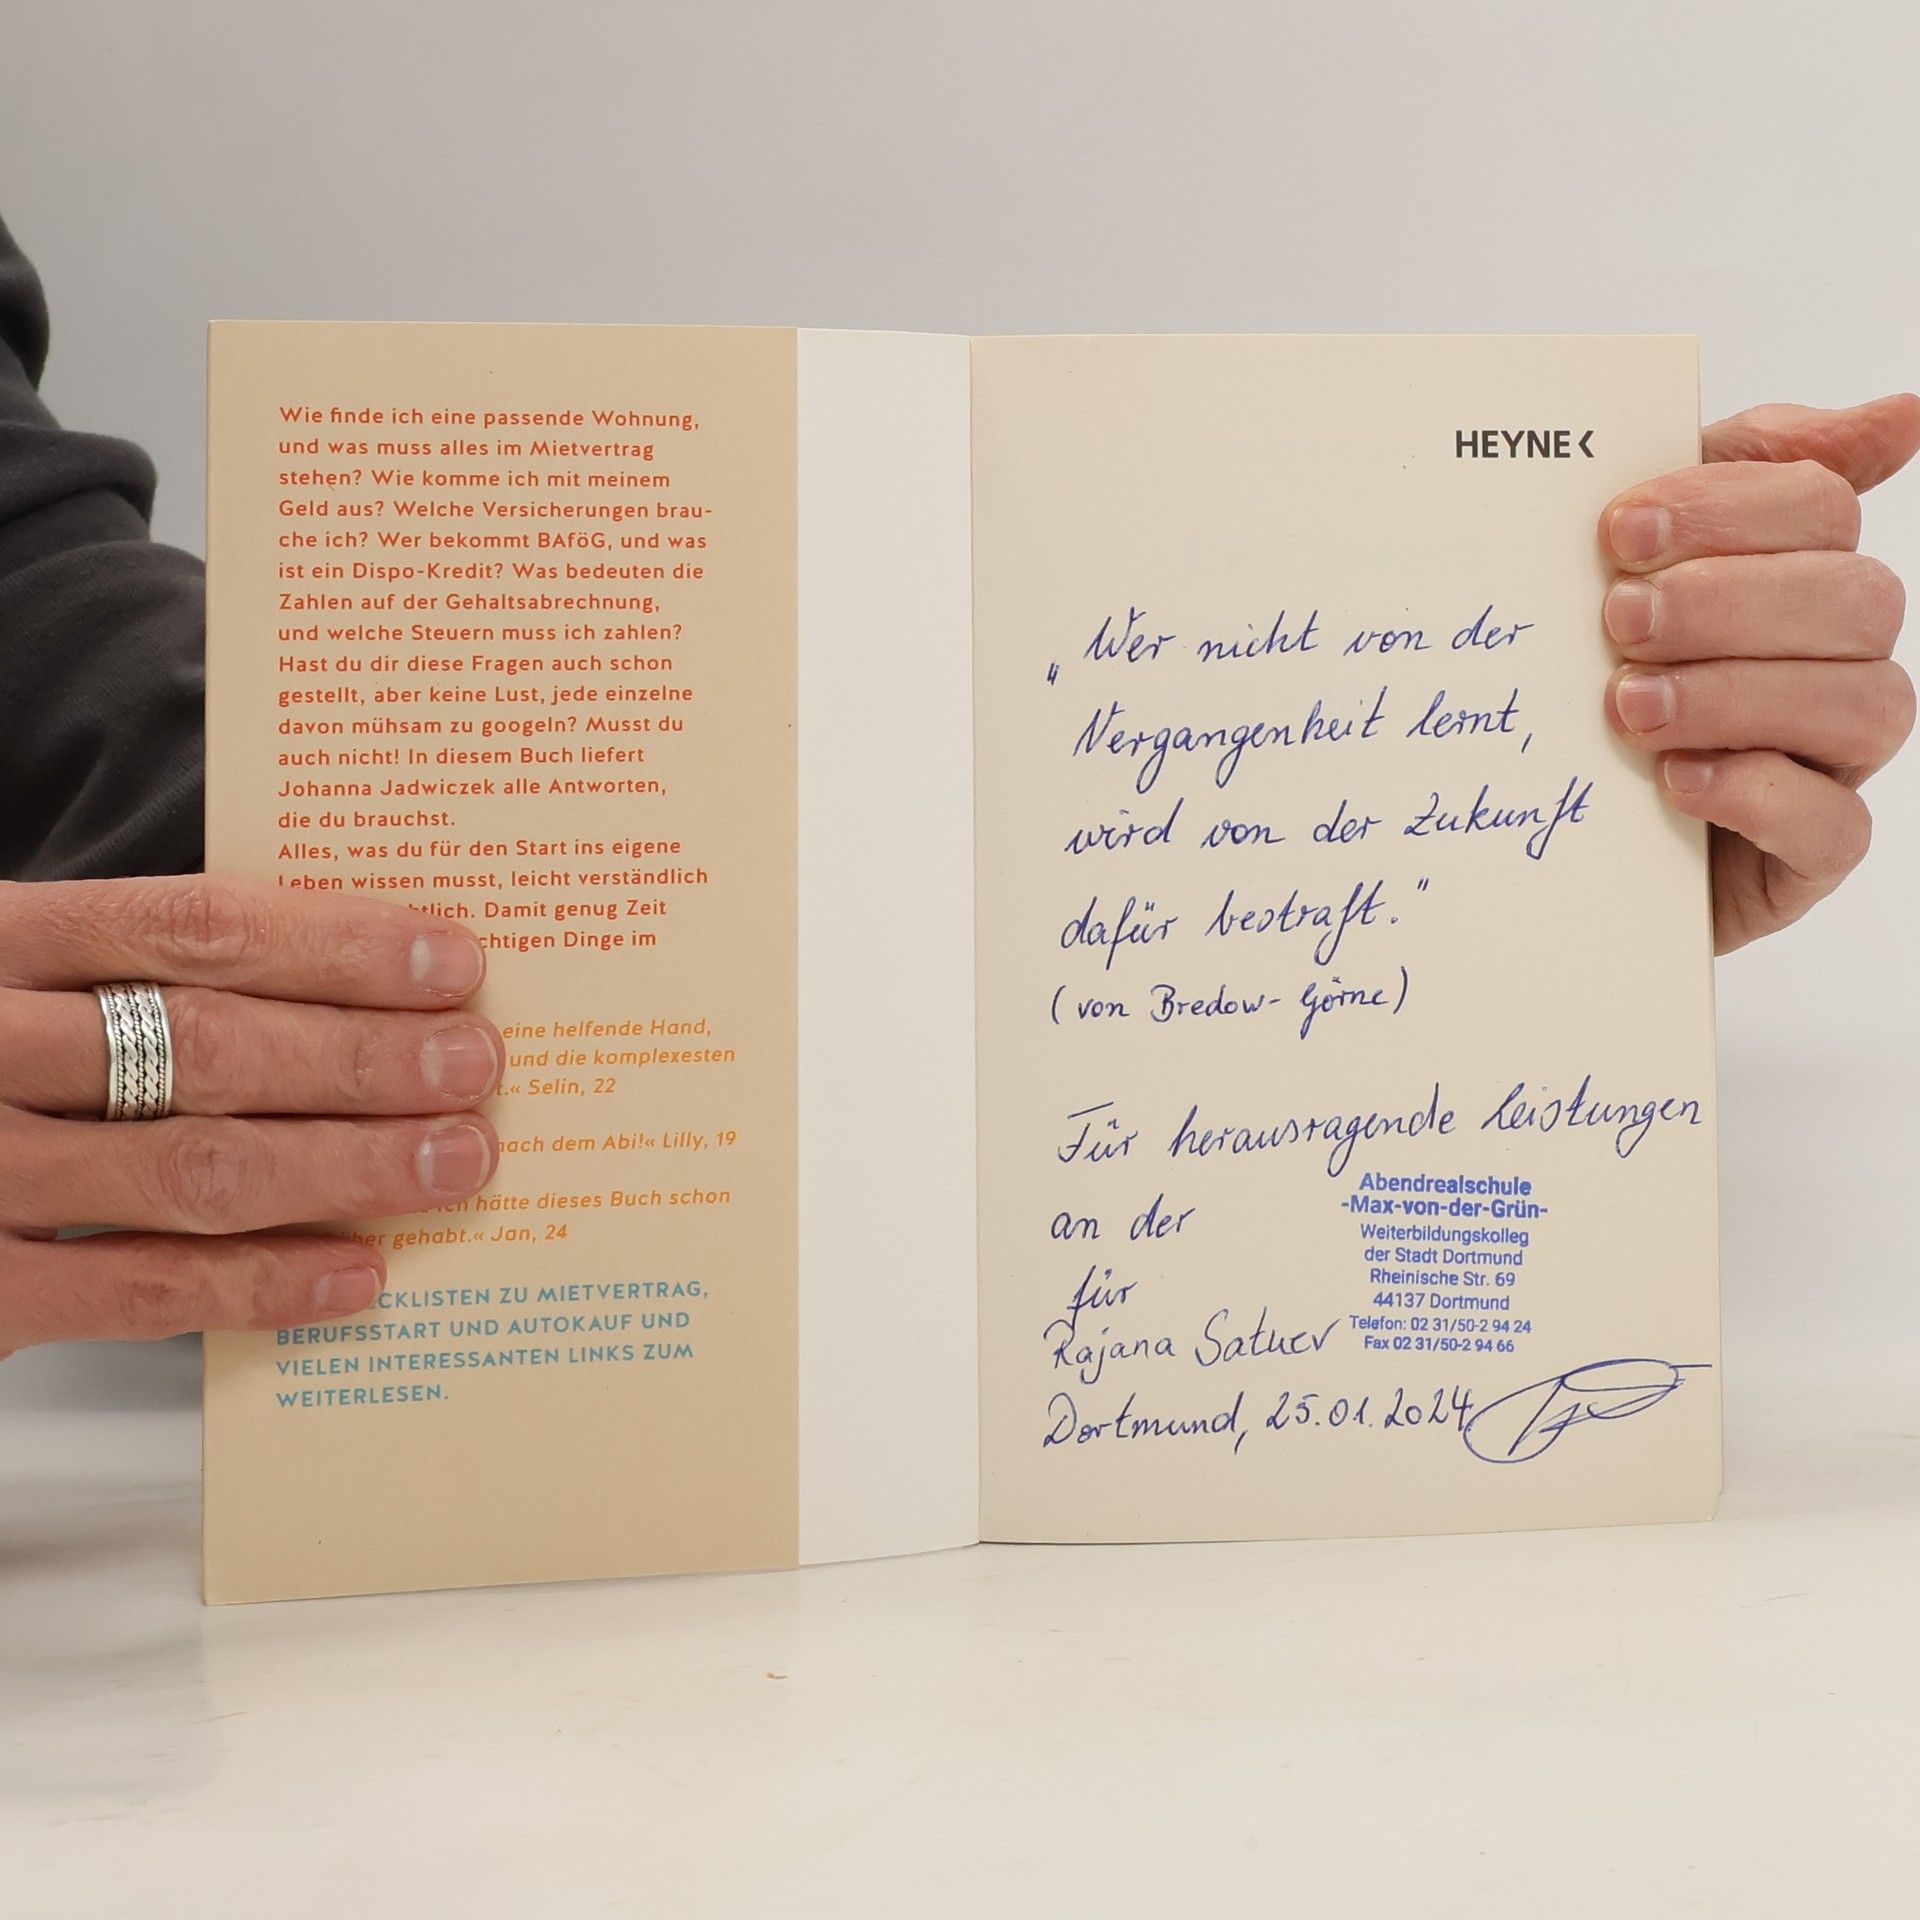 Wie finde ich eine passende Wohnung,
und was muss alles im Mietvertrag
stehen? Wie komme ich mit meinem
Geld aus? Welche Versicherungen brau-
che ich? Wer bekommt BAföG, und was
ist ein Dispo-Kredit? Was bedeuten die
Zahlen auf der Gehaltsabrechnung,
und welche Steuern muss ich zahlen?
Hast du dir diese Fragen auch schon
gestellt, aber keine Lust, jede einzelne
davon mühsam zu googeln? Musst du
auch nicht! In diesem Buch liefert
Johanna Jadwiczek alle Antworten,
die du brauchst.
Alles, was du für den Start ins eigene
Leben wissen musst, leicht verständlich
tlich. Damit genug Zeit
chtigen Dinge im
eine helfende Hand,
und die komplexesten
t.« Selin, 22
nach dem Abi!« Lilly, 19
hätte dieses Buch schon
gehabt.« Jan, 24
ECKLISTEN ZU MIETVERTRAG,
BERUFSSTART UND AUTOKAUF UND
VIELEN INTERESSANTEN LINKS ZUM
WEITERLESEN.
HEYNE
„Wer nicht von der
Vergangenheit lernt,
wird von der Zukunft
dafür bestraft."
(von Bredow-Görne)
Für herausragende Leistungen
an der
Abendrealschule
-Max-von-der-Grün-
Weiterbildungskolleg
der Stadt Dortmund
Rheinische Str. 69
44137 Dortmund
Telefon: 02 31/50-2 94 24
Fax 02 31/50-2 94 66
für
Rajana Satuev
Dortmund, 25.01.2024